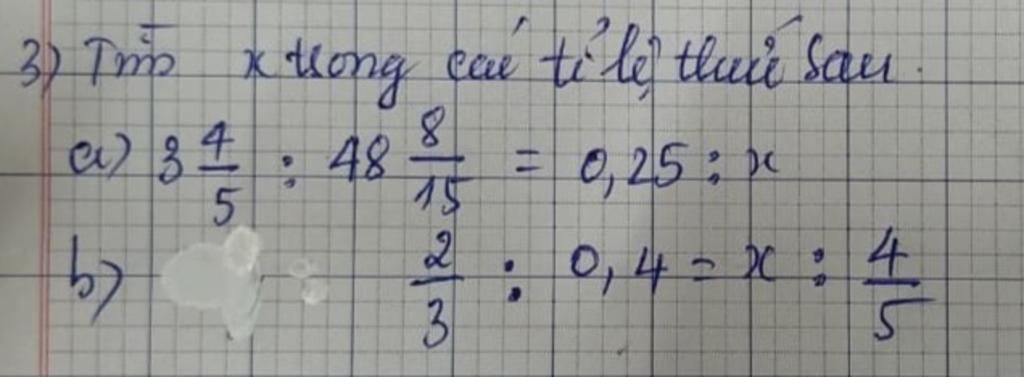 3) Tìm x trong các tỉ lệ thức sau.
a) 3 4/5 : 48 8/15 = 0,25 : x
b) 2/3 : 0,4 = x : 4/5